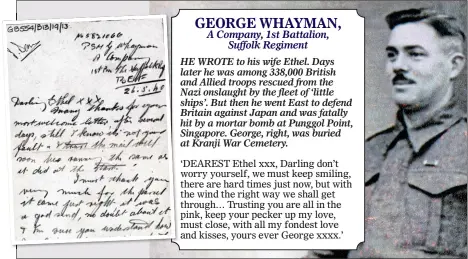 GB554/B/3/19/13
Nº5821066
PSM G Whayman
A Company
1st Bn The Suffolk Reg
B.E.F.
26.5.40
Darling Ethel xxx
Many thanks for your
most welcome letter, after several
days, still I know its not your
fault
soon has running the same as
it did at the
I must thank you
very much for the parcel
it came just right it was
a god send, no doubt about it
I am sure you understand how
GEORGE WHAYMAN,
A Company, 1st Battalion,
Suffolk Regiment
HE WROTE to his wife Ethel. Days
later he was among 338,000 British
and Allied troops rescued from the
Nazi onslaught by the fleet of ‘little
ships’. But then he went East to defend
Britain against Japan and was fatally
hit by a mortar bomb at Punggol Point,
Singapore. George, right, was buried
at Kranji War Cemetery.
‘DEAREST Ethel xxx, Darling don’t
worry yourself, we must keep smiling,
there are hard times just now, but with
the wind the right way we shall get
through… Trusting you are all in the
pink, keep your pecker up my love,
must close, with all my fondest love
and kisses, yours ever George xxxx.’